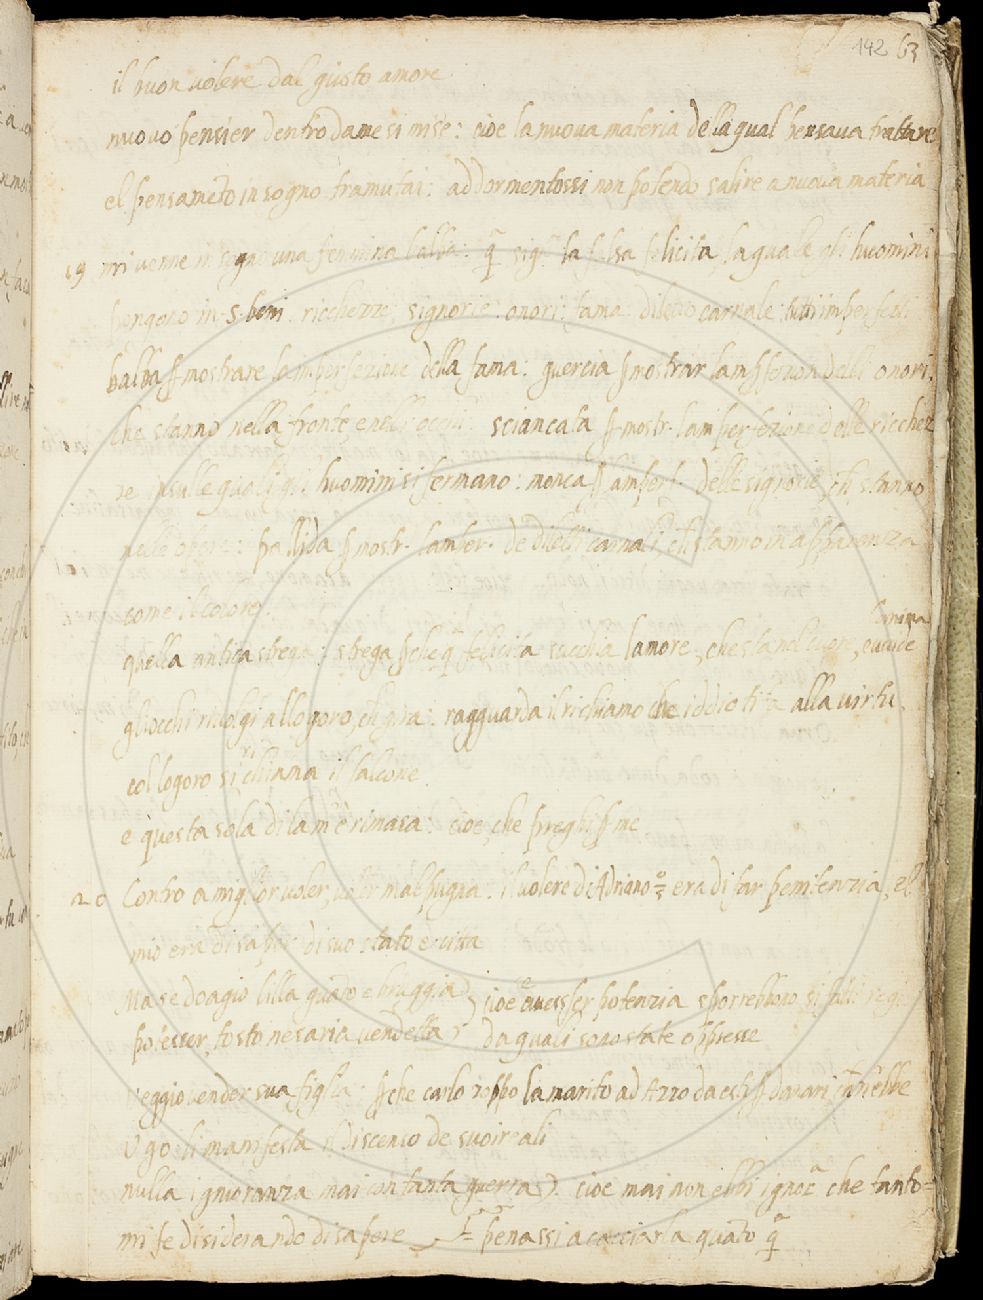 142 63
il buon volere dal giusto amore
nuovo pensier dentro da me si mise: cioe la nuova materia dela qual pensava trattare
el pensameto in sogno tramutai: addormentossi non potendo salire a nuova materia
19 mi venne in sogno una femmina balba: q̃ sig. la falsa felicita, la quale gli huomini
pongono in .5. beni. ricchezze, signorie: onori: fama: diletto carnale: tutti imperfetti
balba ꝑ mostrare la imperfezione della fama: guercia ꝑ mostrar lamꝑfezion delli onori,
che stanno nella fronte, e nelli occhi: sciancata ꝑ mostr. lamperfezione delle ricchez
ze in sulle quali gli huomini si fermano: monca ꝑ lamperf. delle signorie, ch stanno
nelle opere: pallida ꝑ mostr. lamper. de diletti carnali, ch stanno in apparenza
come il colore.
quella antica strega: strega ꝑche q̃ felicità succhia lamore, che sta nel cuore, e uccide lanima
gliocchi rivolgi allogoro, ch gira: ragguarda il richiamo che iddio ti fa alla virtu,
col logoro si richiama il falcone
e questa sola di la m'è rimasa: cioe, che preghi ꝑ me
20 Contro a miglior voler, voler mal pugna: il volere di Adriano era di far penitenzia, el
mio era di saper di suo stato e vita
Ma se doagio lilla guato e bruggia cioe se avesser potenzia sporrebbono
potesser, tosto ne saria vendetta da quali sono state oppresse
veggio vender sua figlia: ꝑche carlo zoppo la marito ad Azzo da esti ꝑ danari ch n'ebbe
Ugo li manifesta il discenso de suoi reali
nulla ignoranza mai con tanta guerra). cioe mai non ebbi ignoz̃ che tanto
mi fe disiderando di sapere penassi a cacciarla quato q̃